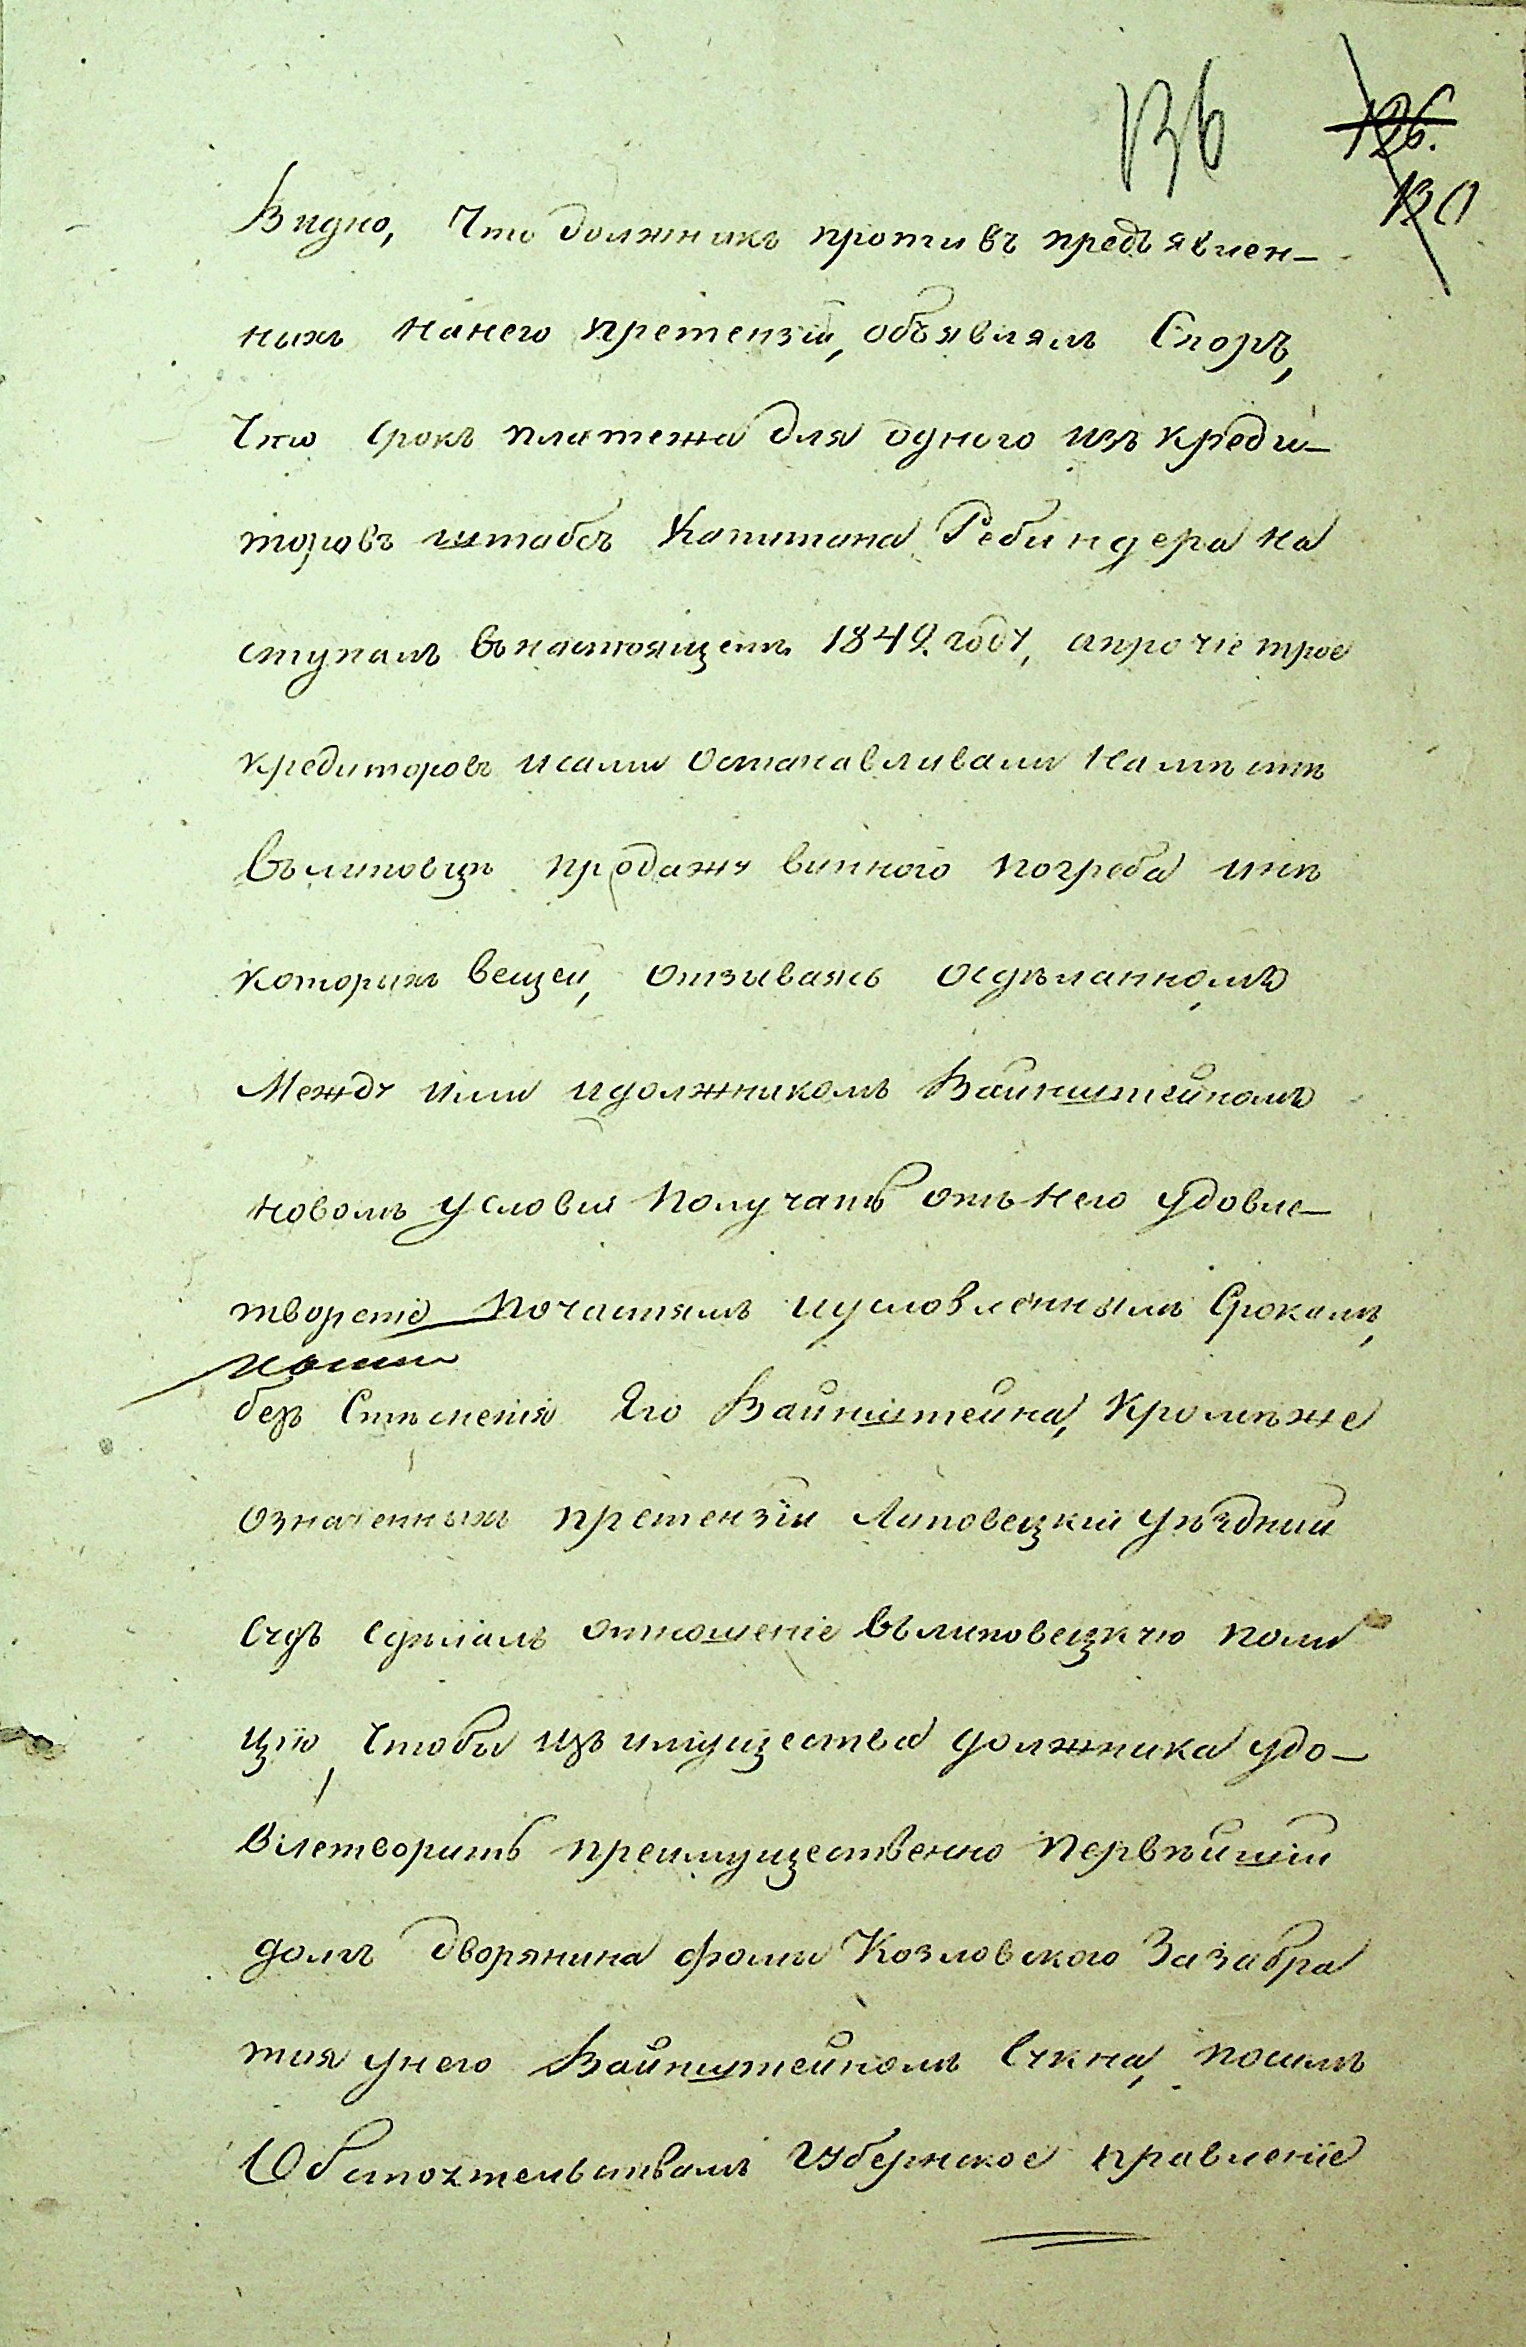 136
126.
130
Видно, Что должникъ противъ предъявлен-
ныхъ нанего претензій, объявлялъ Споръ,
Что срокъ платежа для одного изъ креди-
торовъ штабсъ Капитана Ребиндера на
ступалъ въ настоящемъ 1842 году, апрочіе трое
кредиторовъ исами останавливали намѣстѣ
въ липовцѣ продажу виннаго погреба инѣ
которыхъ вещей, отзываясь осдѣланномъ
Между ими идолжникомъ Вайнштейномъ
новомъ условіи получать отънего удовле-
твореніе почастямъ иусловленнымъ Срокамъ,
безъ Стѣсненія Его Вайнштейна, Кромѣже
означенныхъ претензіи Липовецкій уѣздный
Судъ сдѣлалъ отношеніе въ липовецкую поли
цію, Чтобы изъ имущества должника удо-
влетворить преимущественно первѣйшій
долгъ дворянина фомы Козловского Зазабра
тія унего Вайнштейномъ Сукна, посимъ
Обстоятельствамъ губернское правленіе